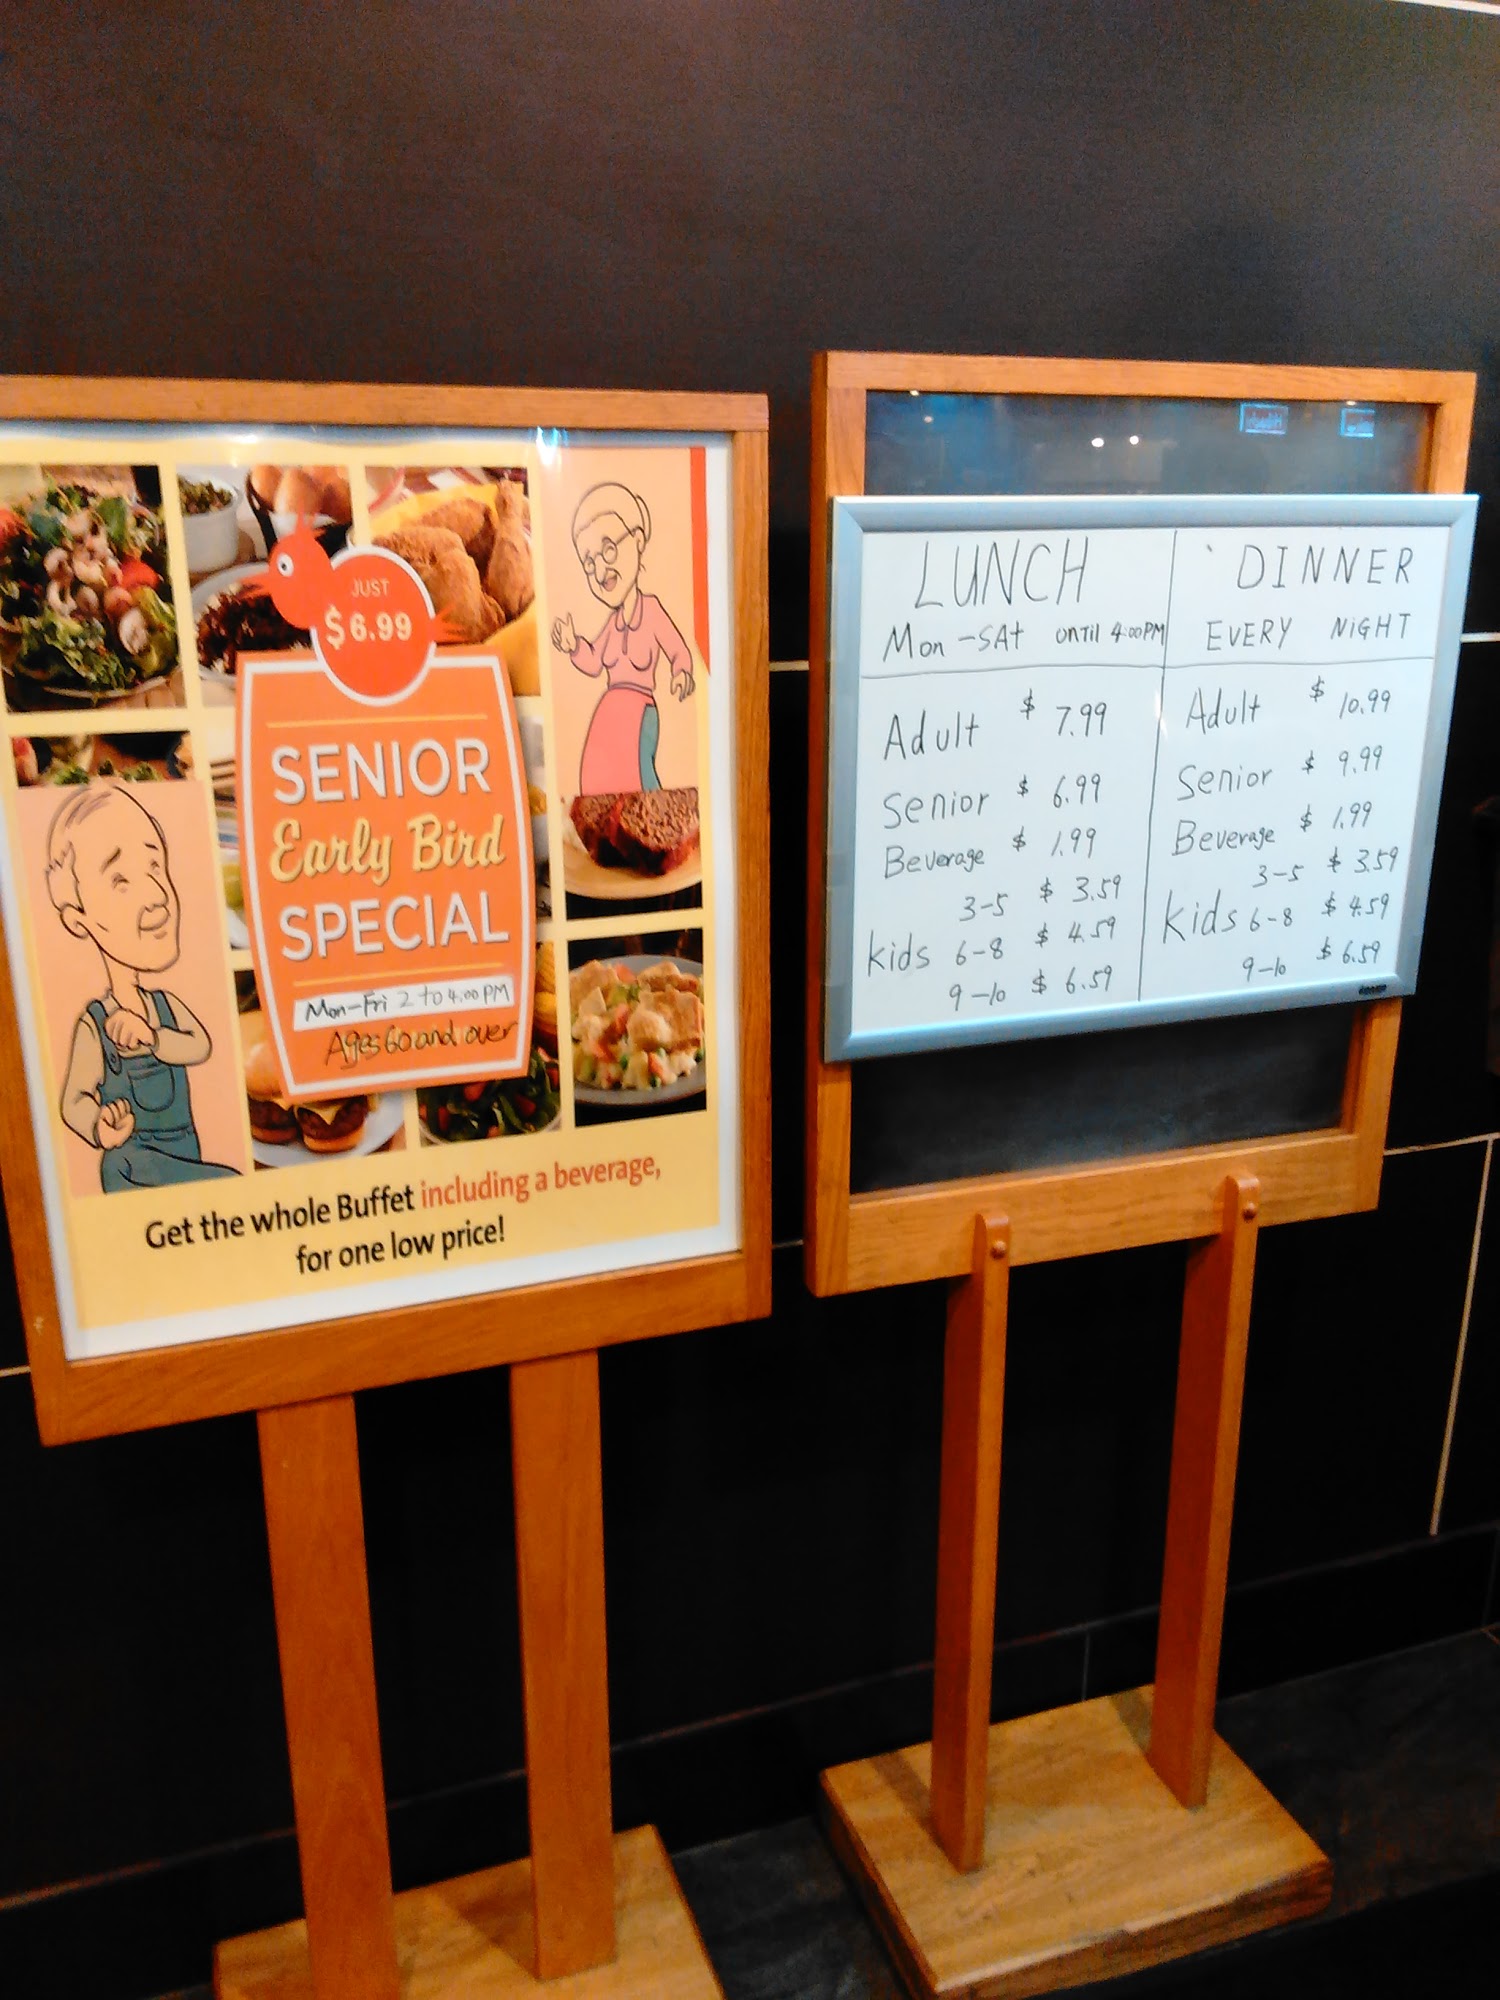 JUST
$6.99
SENIOR
Early Bird
SPECIAL
Mon-Fri 2 to 4:00 PM
Ages 60 and over
Get the whole Buffet including a beverage,
for one low price!
LUNCH
Mon - SAt UNTil 4:00PM
Adult $ 7.99
Senior $ 6.99
Beverage $ 1.99
3-5 $ 3.59
kids 6-8 $ 4.59
9-10 $ 6.59
DINNER
EVERY NiGHT
Adult $ 10.99
Senior $ 9.99
Beverage $ 1.99
3-5 $ 3.59
kids 6-8 $ 4.59
9-10 $ 6.59